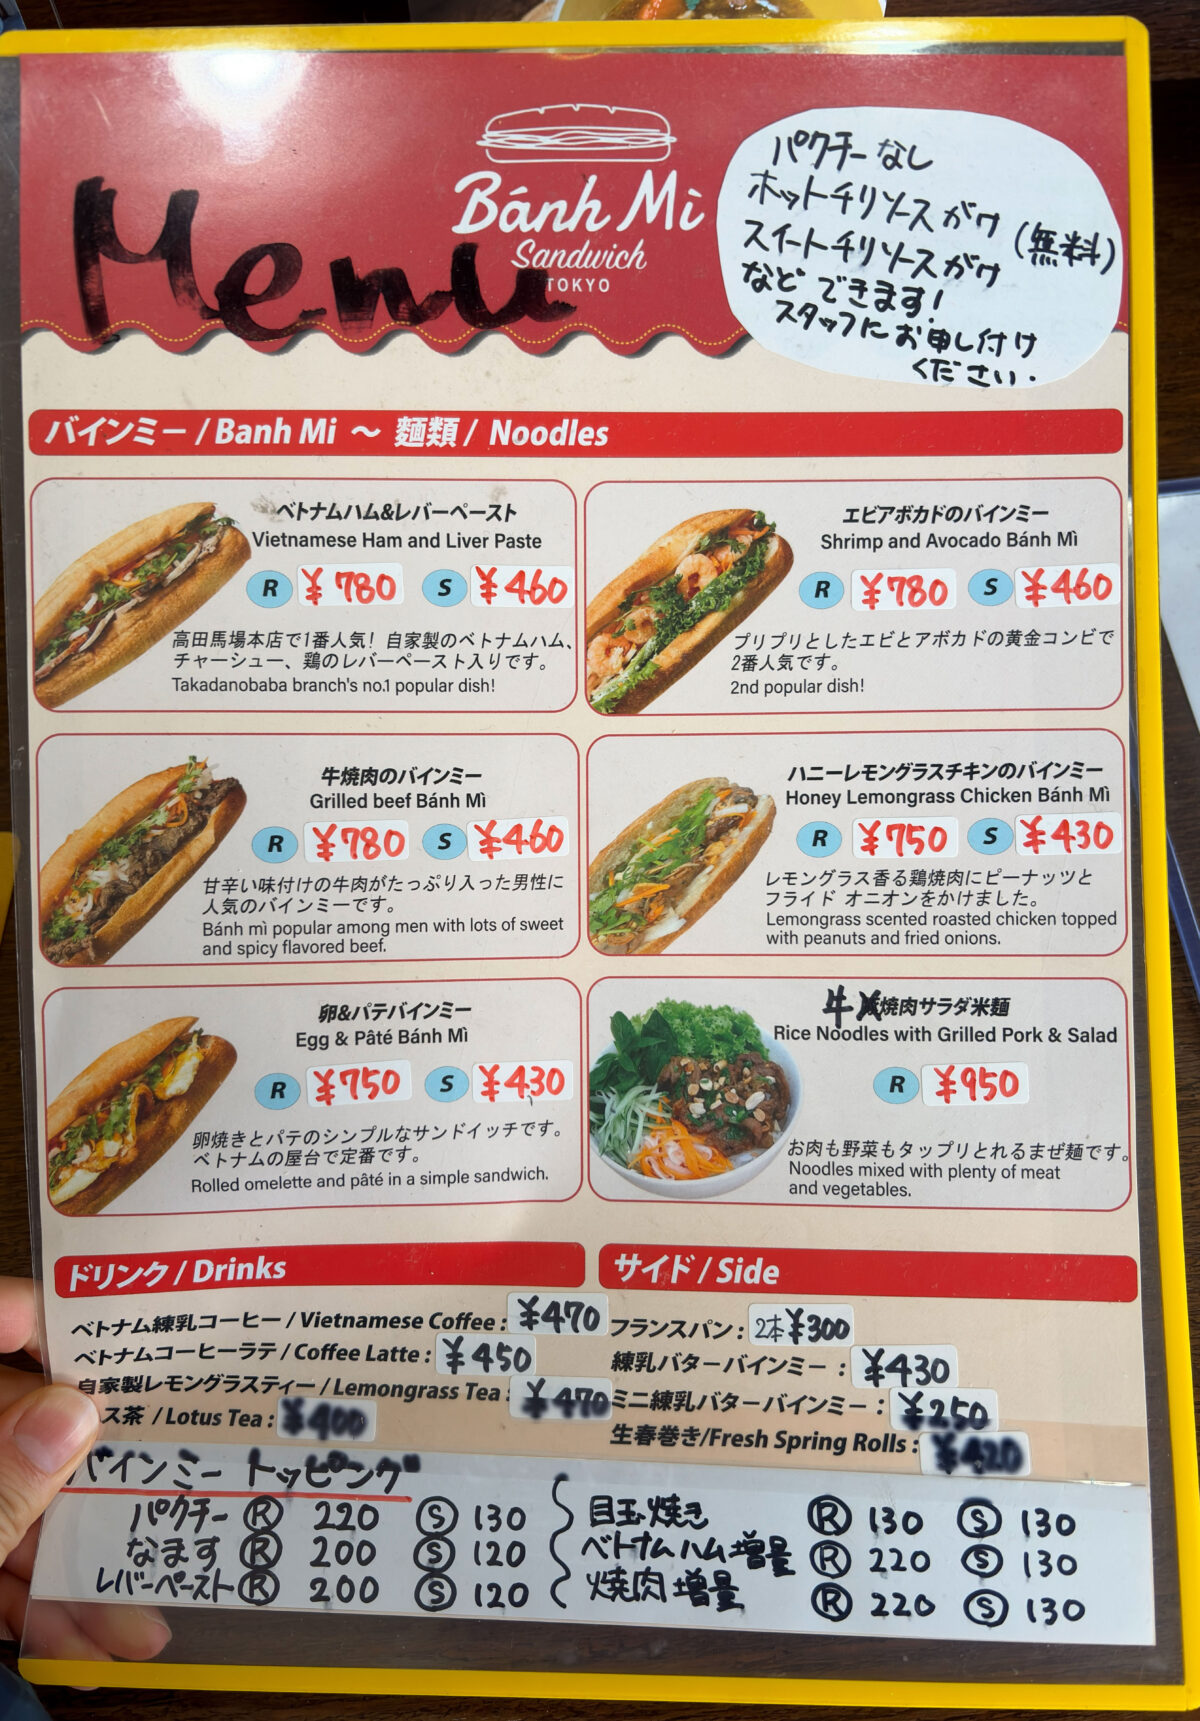 Menu
Bánh Mì
Sandwich
TOKYO
パクチーなし
ホットチリソースがけ
スイートチリソースがけ
(無料)
などできます!
スタッフにお申し付け
ください.
バインミー / Banh Mi ～ 麺類 / Noodles
ベトナムハム&レバーペースト
Vietnamese Ham and Liver Paste
R ¥780 S ¥460
高田馬場本店で1番人気! 自家製のベトナムハム、
チャーシュー、鶏のレバーペースト入りです。
Takadanobaba branch's no.1 popular dish!
エビアボカドのバインミー
Shrimp and Avocado Bánh Mì
R ¥780 S ¥460
プリプリとしたエビとアボカドの黄金コンビで
2番人気です。
2nd popular dish!
牛焼肉のバインミー
Grilled beef Bánh Mì
R ¥780 S ¥460
甘辛い味付けの牛肉がたっぷり入った男性に
人気のバインミーです。
Bánh mì popular among men with lots of sweet
and spicy flavored beef.
ハニーレモングラスチキンのバインミー
Honey Lemongrass Chicken Bánh Mì
R ¥750 S ¥430
レモングラス香る鶏焼肉にピーナッツと
フライド オニオンをかけました。
Lemongrass scented roasted chicken topped
with peanuts and fried onions.
卵&パテバインミー
Egg & Pâté Bánh Mì
R ¥750 S ¥430
卵焼きとパテのシンプルなサンドイッチです。
ベトナムの屋台で定番です。
Rolled omelette and pâté in a simple sandwich.
牛焼肉サラダ米麺
Rice Noodles with Grilled Pork & Salad
R ¥950
お肉も野菜もタップリとれるまぜ麺です。
Noodles mixed with plenty of meat
and vegetables.
ドリンク / Drinks
ベトナム練乳コーヒー / Vietnamese Coffee : ¥470
ベトナムコーヒーラテ / Coffee Latte : ¥450
自家製レモングラスティー / Lemongrass Tea : ¥470
ス茶 / Lotus Tea : ¥400
サイド / Side
フランスパン : 2本¥300
練乳バターバインミー : ¥430
ミニ練乳バターバインミー : ¥250
生春巻き/Fresh Spring Rolls : ¥420
バインミー トッピング
パクチー R 220 S 130
なます R 200 S 120
レバーペースト R 200 S 120
目玉焼き R 130 S 130
ベトナムハム増量 R 220 S 130
焼肉増量 R 220 S 130